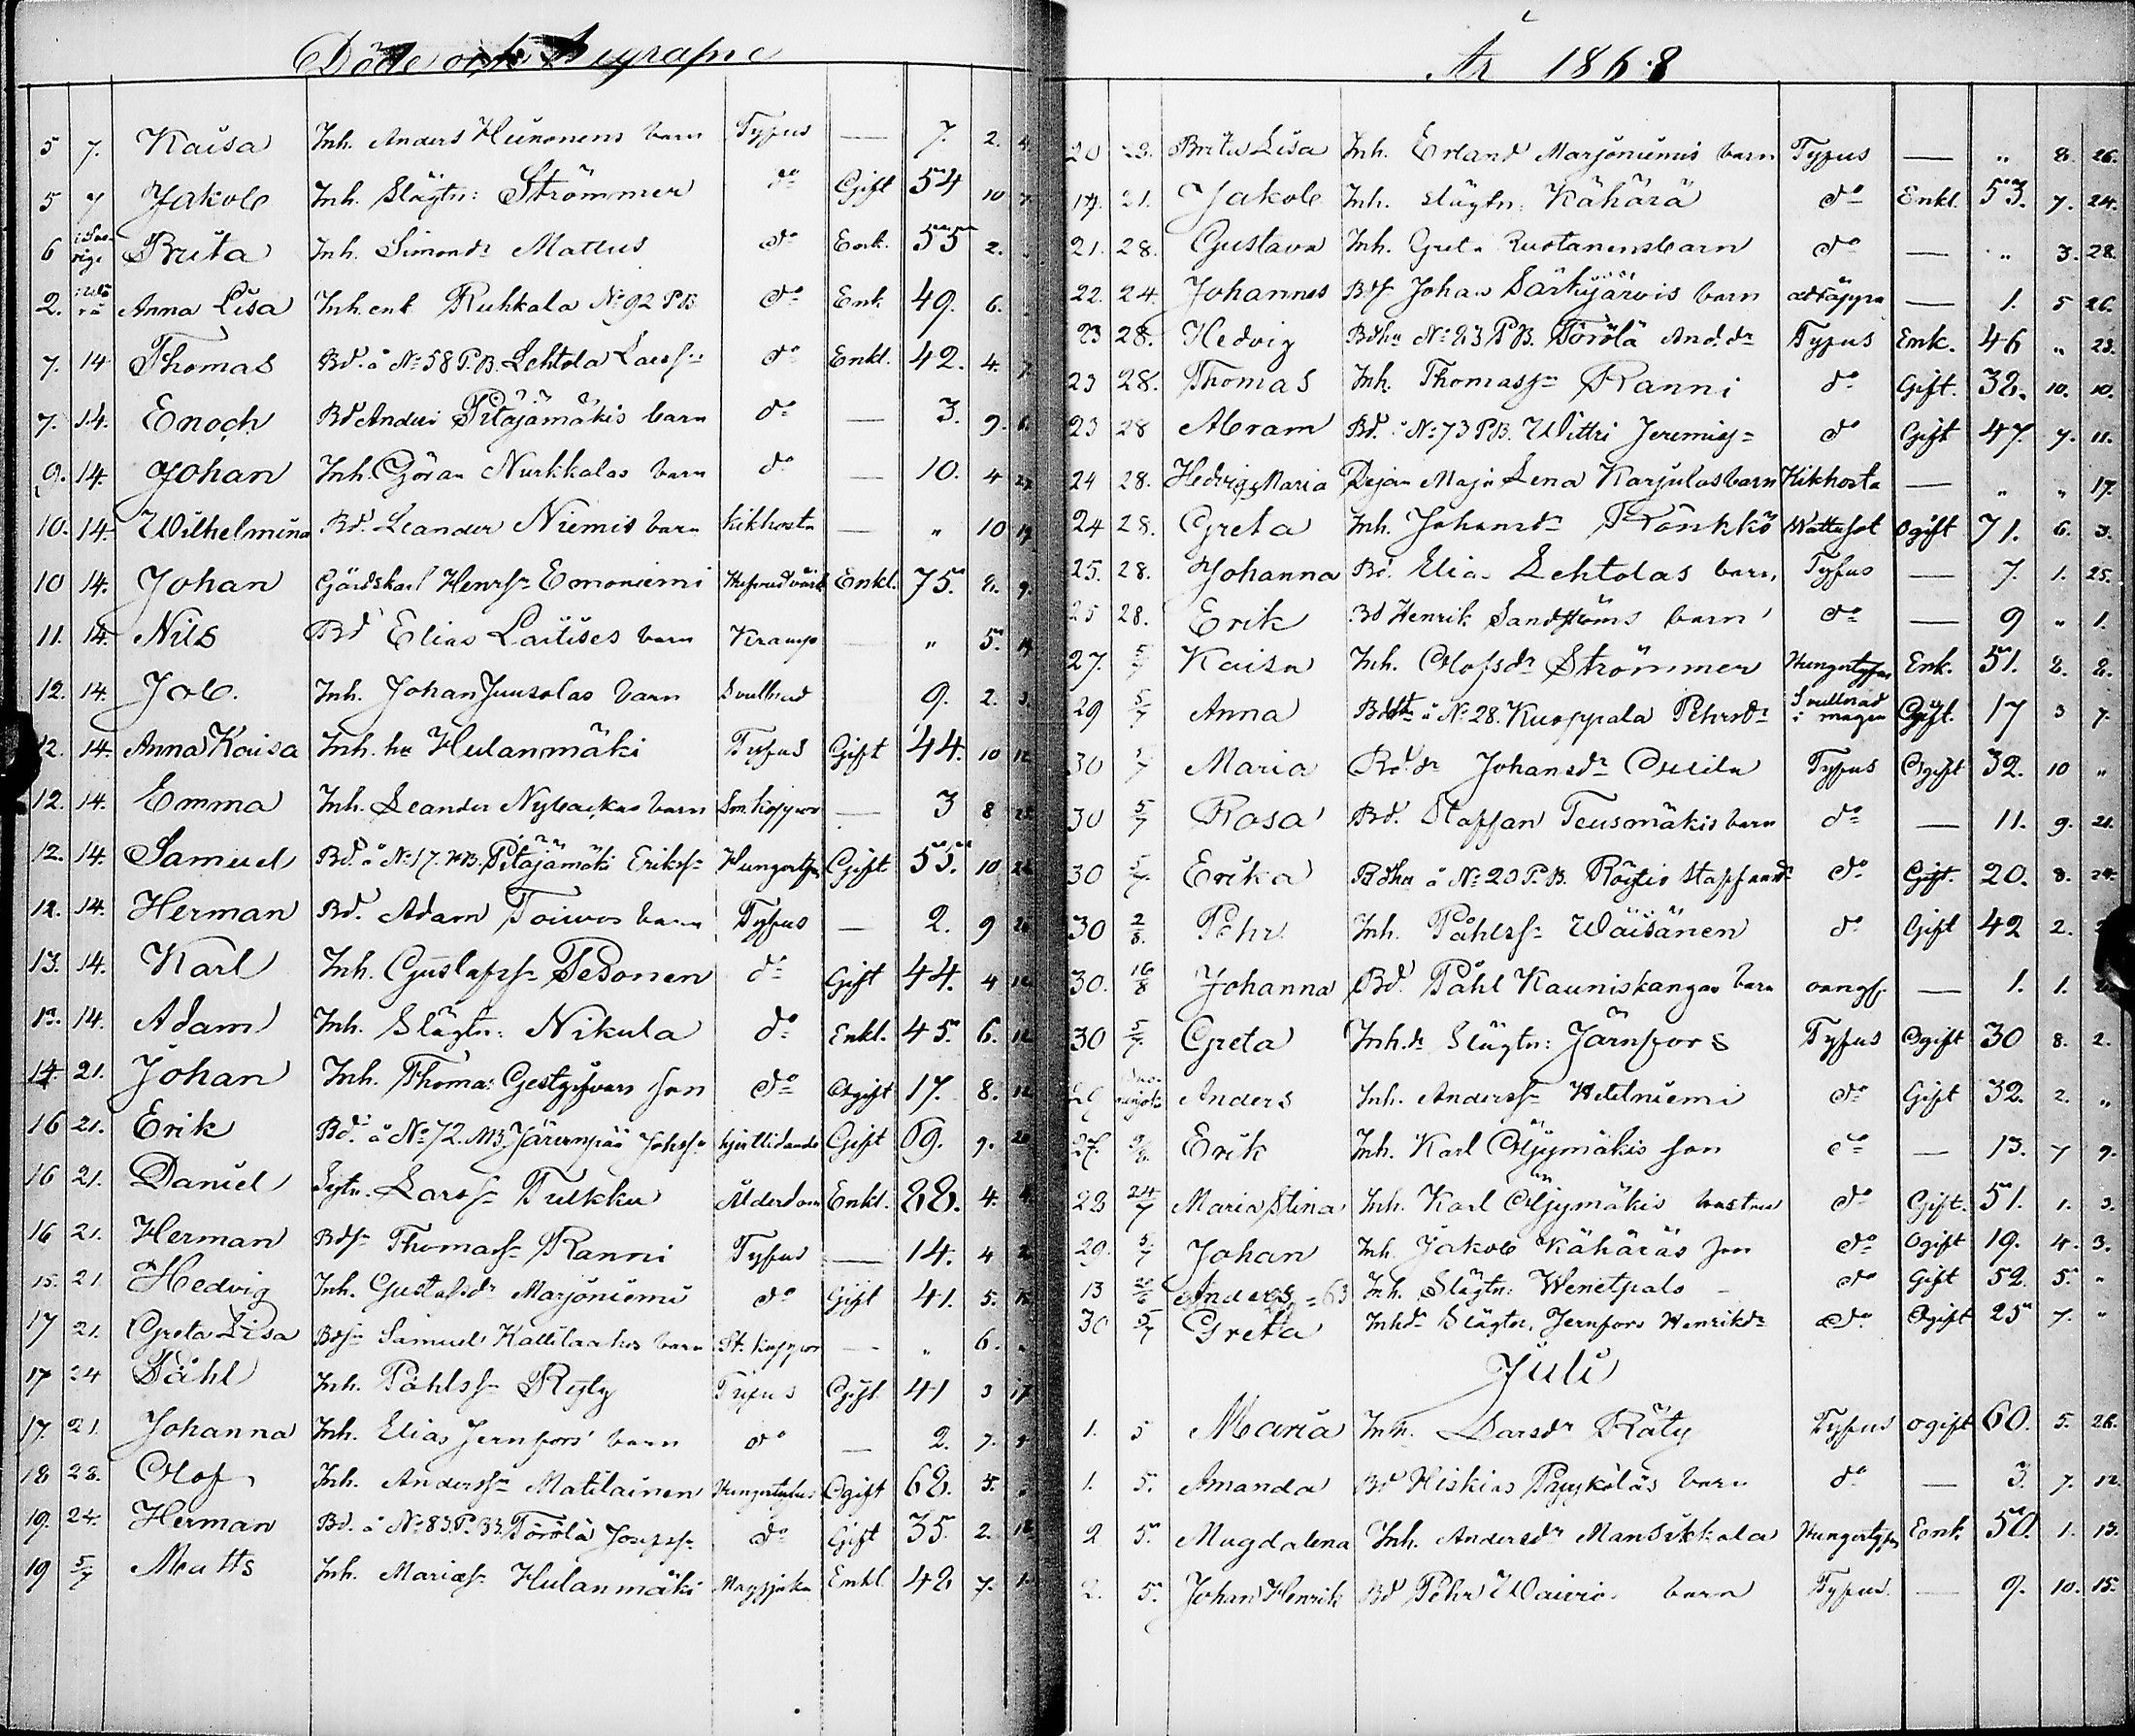 Döde och Begrafne
5 7. Kaisa Inh. Anders Heinonens barn Typus — 7. 2.
5 7 Jakob Inh. Slägtn: Strömmer do Gift 54 10 7.
6 Brita Inh. Simonsdr Mattus do Enk. 55 2.
2. Anna Lisa Inh. enk Ruhkala No 92 PB do Enk 49. 6.
7. 14 Thomas Bd. å No 58 P.B. Lehtola Larsfn do Enkl. 42. 4. 7.
7. 14. Enoch Bd Anders Pitäjämäkis barn do — 3. 9. 6.
9. 14. Johan Inh. Göran Nurkkalas barn do — 10. 4
10. 14. Wilhelmina Bd. Leander Niemis barn kikhosta — " 10
10 14. Johan Gårdskarl Henrsfn Emoniemi Enkl. 75. 8. 9.
11. 14 Nils Bd Elias Laitises barn Kramp — " 5.
12. 14. Job. Inh. Johan Juusolas barn Svullnad 9. 2. 3.
12. 14. Anna Kaisa Inh. hu Hulanmäki Typus Gift 44. 10 12
12. 14. Emma Inh. Leander Nybackas barn Sm. koppor — 3 8
12. 14. Samuel Bd. å No 17. NB. Pitäjämäki Eriksfn Hungertyfus Gift 55. 10
12. 14. Herman Bd. Adam Toivos barn Typus — 2. 9
13. 14. Karl Inh. Gustafsfn Pesonen do Gift 44. 4
13. 14. Adam Inh. Slägtn: Nikula do Enkl. 45. 6. 12
14. 21. Johan Inh. Thomas Gestgifvars son do Ogift 17. 8. 12
16 21. Erik Bd. å No 72. NB. Järvenpää Johsfn hjertlidande Gift 69. 9.
16 21. Daniel Sytn. Larsfn Tulkku Ålderdom Enkl. 88. 4.
16 21. Herman Bdsn Thomasfn Ranni Typus — 14. 4
15. 21. Hedvig Inh. Gustafsdr Marjoniemi do Gift 41. 5.
17 21. Greta Lisa Bdsn Samuel Kallilaakos barn St. koppor — " 6. "
17 24 Påhl Inh. Påhlsfn Ryty Typus Gift 41 3 17
17. 21. Johanna Inh. Elias Jernfors' barn do — 2. 7.
18 28. Olof Inh. Andersfn Matilainen Hungertyfus Ogift 68. 5.
19. 24. Herman Bd. å No 83. P.B. Törölä Josepsfn do Gift 35. 2.
19 5/7 Matts Inh. Mariasfn Hulanmäki Magsjuka Enkl. 48 7.
År 1868
20 28. Brita Lisa Inh. Erland Marjoniemis barn Typus — " 8. 26.
19. 21. Jakob Inh. slägtn: Kähärä do Enkl. 53. 7. 24.
21. 28. Gustava Inh. Greta Rustanens barn do — " 3. 28.
22. 24. Johannes Bdsn Johan Särkijärvis barn — 1. 5 26.
23 28. Hedvig Bdhu No 23 PB. Törölä And.dr Typus Enk. 46 " 23.
23 28. Thomas Inh. Thomassfn Ranni do Gift. 32. 10. 10.
23 28 Abram Bd. å No 73 PB. Wittri Jeremiasfn do Gift 47. 7. 11.
24 28. Hedvig Maria Pigan Maja Lena Karjulas barn Kikhosta — " " 17.
24 28. Greta Inh. Johansdr Rönkkö Wattusot Ogift 71. 6. 3.
25. 28. Johanna Bd. Elias Lehtolas barn Tyfus — 7. 1. 25.
25 28. Erik Bd Henrik Sandströms barn do — 9 " 1.
27. 5/7 Kaisa Inh. Olofsdr Strömmer Hungertyfus Enk. 51. 8. 8.
29 5/7 Anna Bddtr å No 28. Kuoppala Pehrsdr Svullnad i magen Ogift. 17 3 7.
30 5/7 Maria Bd.dr Johansdr Typus Ogift 32. 10 "
30 5/7 Rosa Bd. Staffan Teusmäkis barn do — 11. 9. 21.
30 5/7. Erika Bdhu å No 20 P.B. Röytiö Staffansdr do Gift. 20. 8. 24.
30 2/8. Pehr Inh. Påhlsfn Wäisänen do Gift 42 2.
30. 16/8 Johanna Bd. Påhl Kauniskangas barn — 1. 1.
30 5/7. Greta Inh.dr Slägtn: Järnfors Typus Ogift 30 8. 2.
Anders Inh. Andersfn Wetelniemi do Gift 32. 2. "
Erik Inh. Karl Öljymäkis son do — 13. 7 9.
28 24/7 Maria Stina Inh. Karl Öljymäkis hustru do Gift. 51. 1. 3.
29. 5/7 Johan Inh. Jakob Kähäräs son do Ogift 19. 4. 3.
13 Anders = 63 Inh. Slägtn: Wenetpalo do Gift 52. 5. "
30 5/7 Greta Inhdr Slägtn. Jernfors Henriksdr do Ogift 25 7. "
Juli
1. 5 Maria Inh. Larsdr Räty Typus ogift 60. 5. 26.
1. 5. Amanda Bd Hiskias Pappkoläs barn do — 3. 7. 12.
2 5. Magdalena Inh. Andersdr Mansikkala Hungertyfus Enk. 50. 1. 13.
2. 5. Johan Henrik Bd Pehr Waivio barn Typus. — 9. 10. 15.